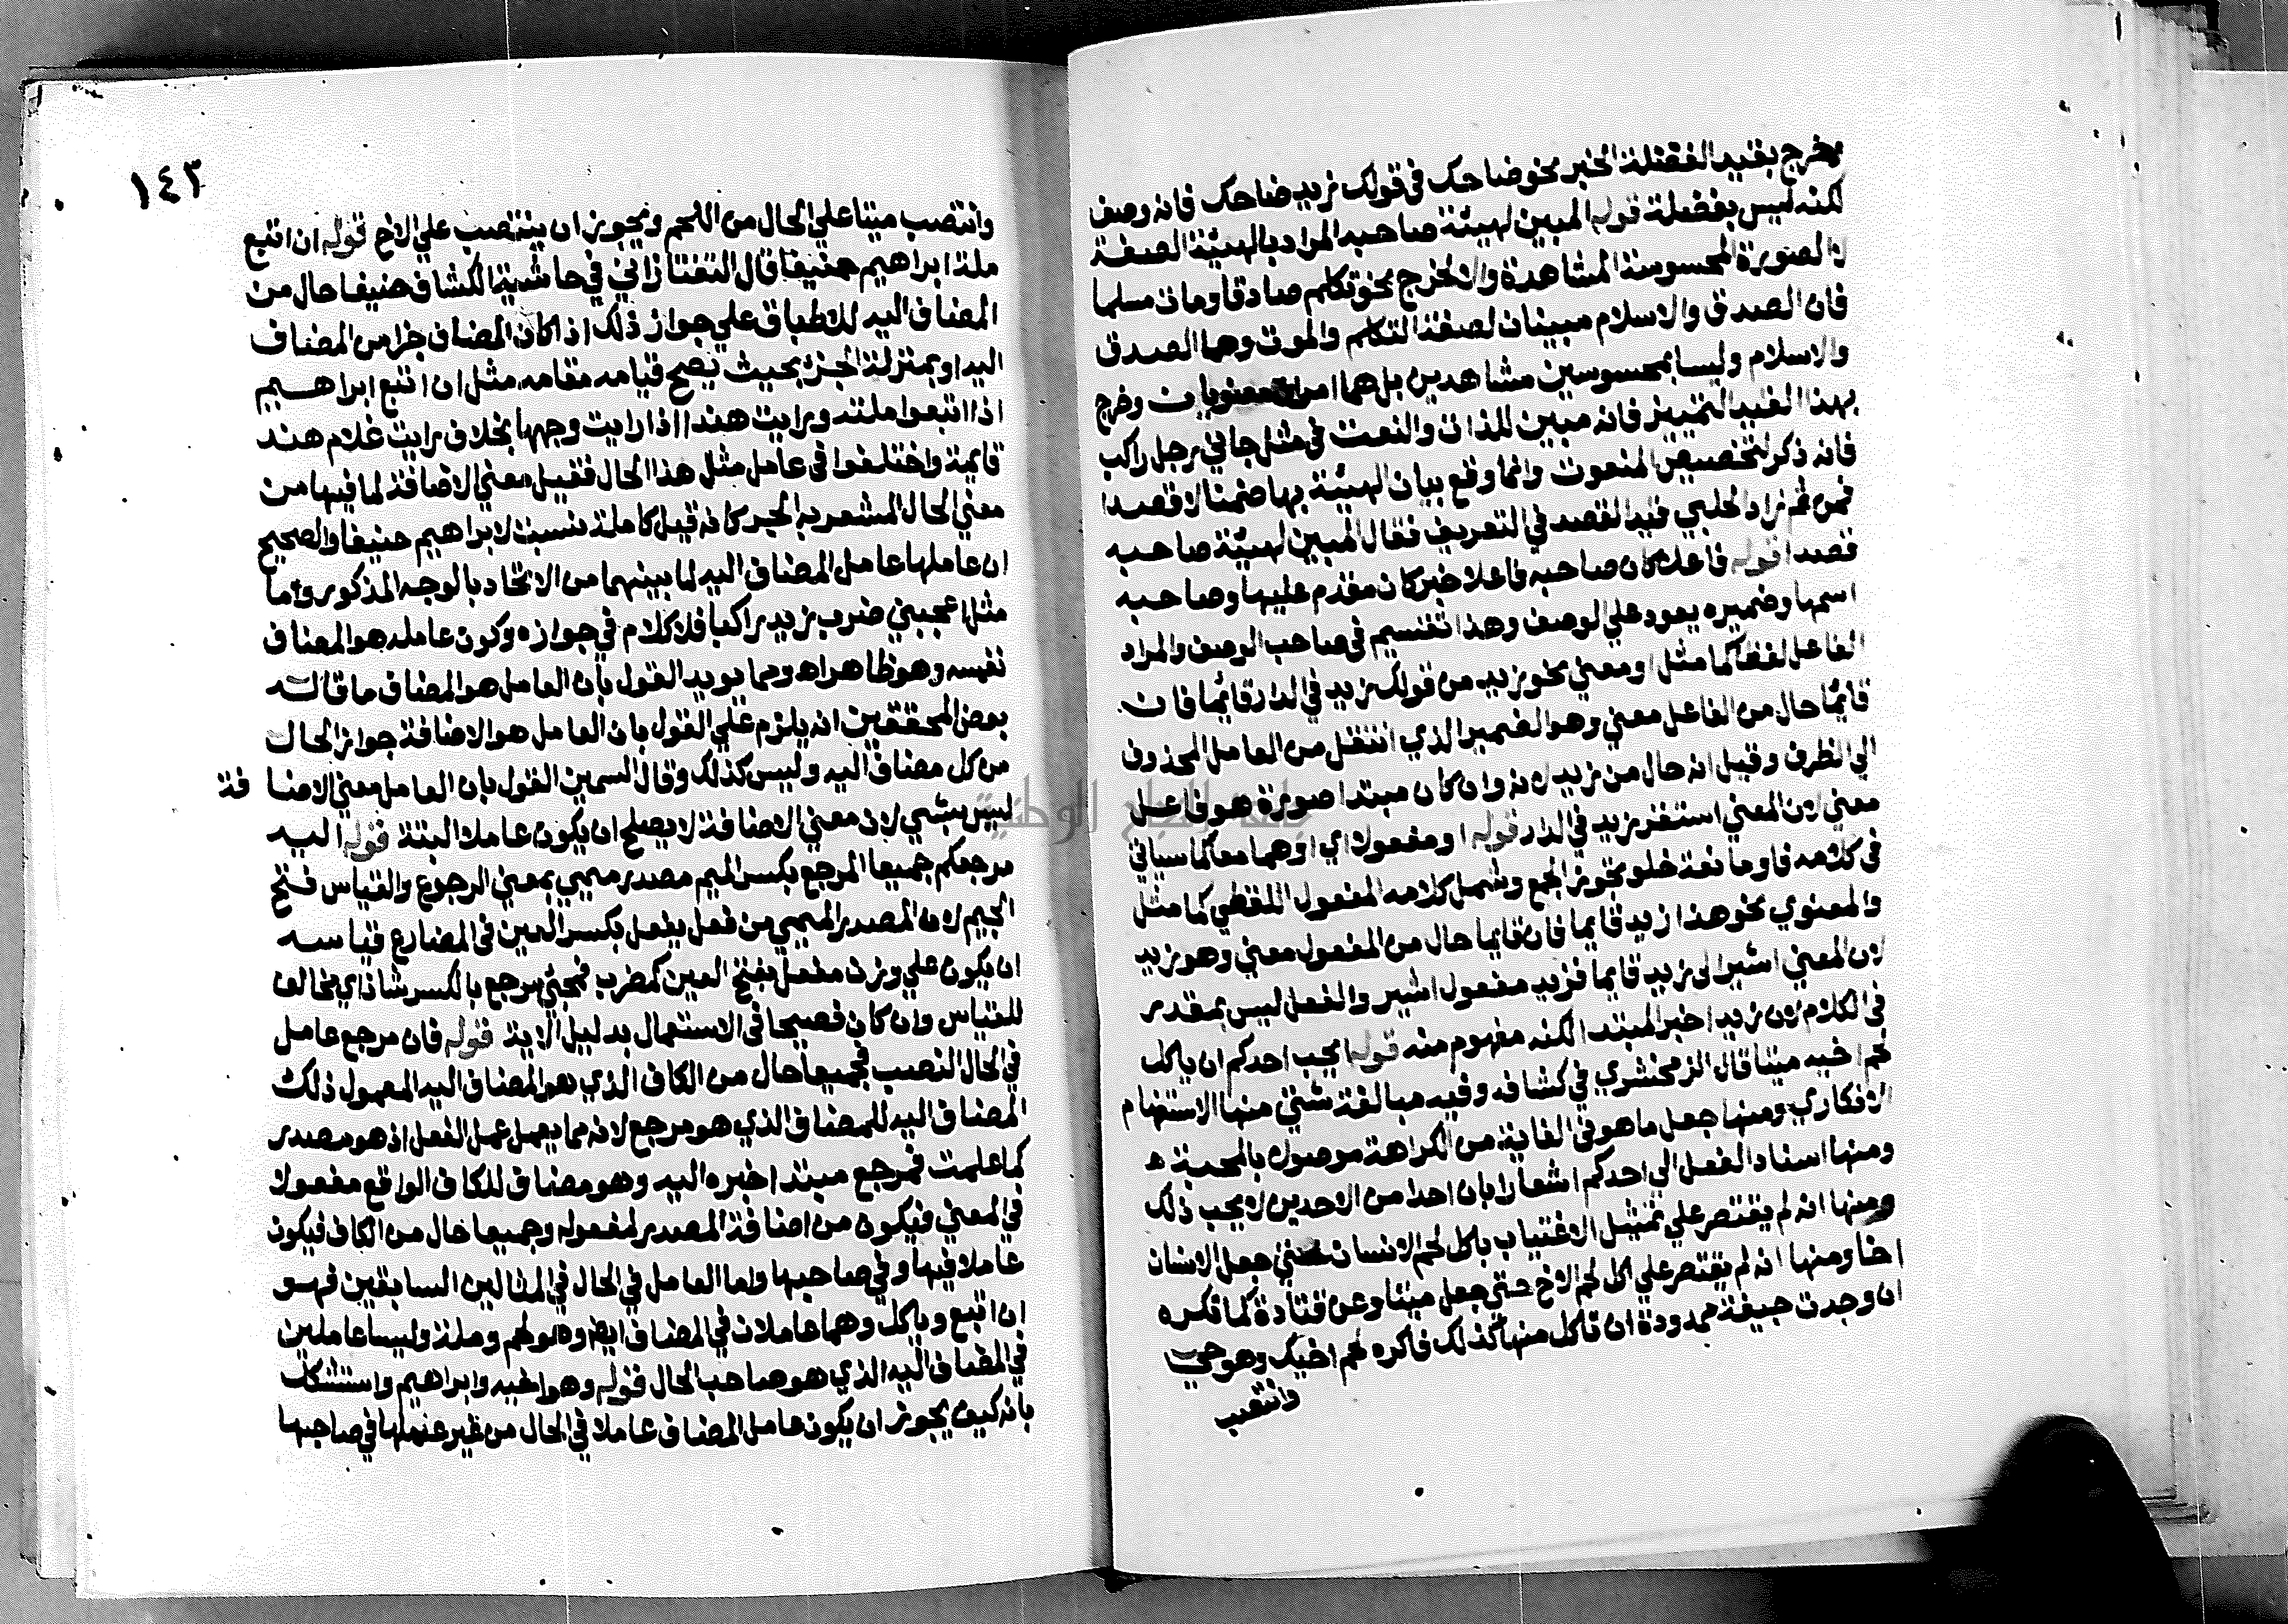 يخرج بقيد الفضلة الخبر نحو ضاحك في قولك زيد ضاحك فانه وصف
لكنه ليس بفضلة قوله المبين لهيئة صاحبه المراد بالهيئة الصفة
لا الصورة المحسوسة المشاهدة والا لخرج نحو تكلم صادقا ومات مسلما
فان الصدق والاسلام مبينان لصفة التكلم والموت وهما الصدق
والاسلام وليسا بمحسوسين مشاهدين بل هما امران معنويان وخرج
بهذا القيد التمييز فانه مبين للذات والنعت في مثل جاني رجل راكب
فانه ذكر لتخصيص المنعوت وانما وقع بيان الهيئة بها ضمنا لا قصدا
فمن ثم زاد الحلبي قيد القصد في التعريف فقال المبين لهيئة صاحبه
قصدا قوله فاعلا كان صاحبه فاعلا خبر كان مقدم عليها وصاحبه
اسمها وضميره يعود علي الوصف وهذا تقسيم في صاحب الوصف والمراد
الفاعل لفظا كما مثل او معني نحو زيد من قولك زيد في الدار قائما فان
قائما حال من الفاعل معني وهو الضمير الذي انتقل من العامل المحذوف
الي الظرف وقيل انه حال من زيد لانه وان كان مبتدا صورة هو فاعل
معني لان المعني استقر زيد في الدار قوله او مفعولا اي او هما معا كما سياتي
في كلامه فاو مانعة خلو تجوز الجمع وشمل كلامه المفعول اللفظي كما مثل
والمعنوي نحو هذا زيد قايما فان قايما حال من المفعول معني وهو زيد
لان المعني اشير الى زيد قايما فزيد مفعول اشير والفعل ليس بمقدر
في الكلام لان زيدا خبر المبتدا لكنه مفهوم منه قوله ايحب احدكم ان ياكل
لحم اخيه ميتا قال الزمخشري في كشافه وفيه مبالغة شتي منها الاستفهام
الانكاري ومنها جعل ما هو في الغاية من الكراهة موصولا بالمحبة ه
ومنها اسناد الفعل الي احدكم اشعارا بان احدا من الاحدين لا يحب ذلك
ومنها انه لم يقتصر علي تمثيل الاغتياب باكل لحم الانسان حتي جعل الانسان
اخا ومنها انه لم يقتصر علي اكل لحم الاخ حتي جعل ميتا وعن قتادة كما تكره
ان وجدت جيفة مدودة ان تاكل منها كذلك فاكره لحم اخيك وهو حي
وانتصب
١٤٣
وانتصب ميتا علي الحال من اللحم ويجوز ان ينتصب علي الاخ قوله ان اتبع
ملة ابراهيم حنيفا قال التفتازاني في حاشية الكشاف حنيفا حال من
المضاف اليه للاطباق علي جواز ذلك اذا كان المضاف جزا من المضاف
اليه او بمنزلة الجزء بحيث يصح قيامه مقامه مثل ان اتبع ابراهيم
اذا اتبعوا ملته ورايت هندا اذا رايت وجهها بخلاف رايت غلام هند
قايمة واختلفوا في عامل مثل هذا الحال فقيل معني الاضافة لما فيها من
معني الحال المشعر به الجر كانه قيل كاملة نسبت لابراهيم حنيفا والصحيح
ان عاملها عامل المضاف اليه لما بينهما من الاتحاد بالوجه المذكور واما
مثل اعجبني ضرب زيد راكبا فلا كلام في جوازه وكون عامله هو المضاف
نفسه وهو ظاهر اه ومما يويد القول بان العامل هو المضاف ما قاله
بعض المحققين انه يلزم علي القول بان العامل هو الاضافة جواز الحال
من كل مضاف اليه وليس كذلك وقال السمين القول بان العامل معني الاضا فة
ليس بشي لان معني الاضافة لا يصلح ان يكون عاملا البتة قوله اليه
مرجعكم جميعا المرجع بكسر الميم مصدر ميمي بمعني الرجوع والقياس فتح
الجيم لان المصدر الميمي من فعل يفعل بكسر العين في المضارع قياسه
ان يكون علي وزن مفعل بفتح العين كمضرب فمجئ مرجع بالكسر شاذ اي مخالف
للقياس وان كان فصيحا في الاستعمال بدليل الاية قوله فان مرجع عامل
في الحال النصب فجميعا حال من الكاف الذي هو المضاف اليه المعمول ذلك
المضاف اليه للمضاف الذي هو مرجع لانه مما يعمل عمل الفعل اذ هو مصدر
كما علمت فمرجع مبتدا خبره اليه وهو مضاف للكاف الواقع مفعولا
في المعني فيكون من اضافة المصدر لمفعوله وجميعا حال من الكاف فيكون
عاملا فيها وفي صاحبها واما العامل في الحال في المثالين السابقين فهو
ان اتبع وياكل وهما عاملان في المضاف ايضا وهو لحم وملة وليسا عاملين
في المضاف اليه الذي هو صاحب الحال قوله وهو اخيه وابراهيم واستشكل
بانه كيف يجوز ان يكون عامل المضاف عاملا في الحال من غير عملها في صاحبها
جامعة النجاح الوطنية